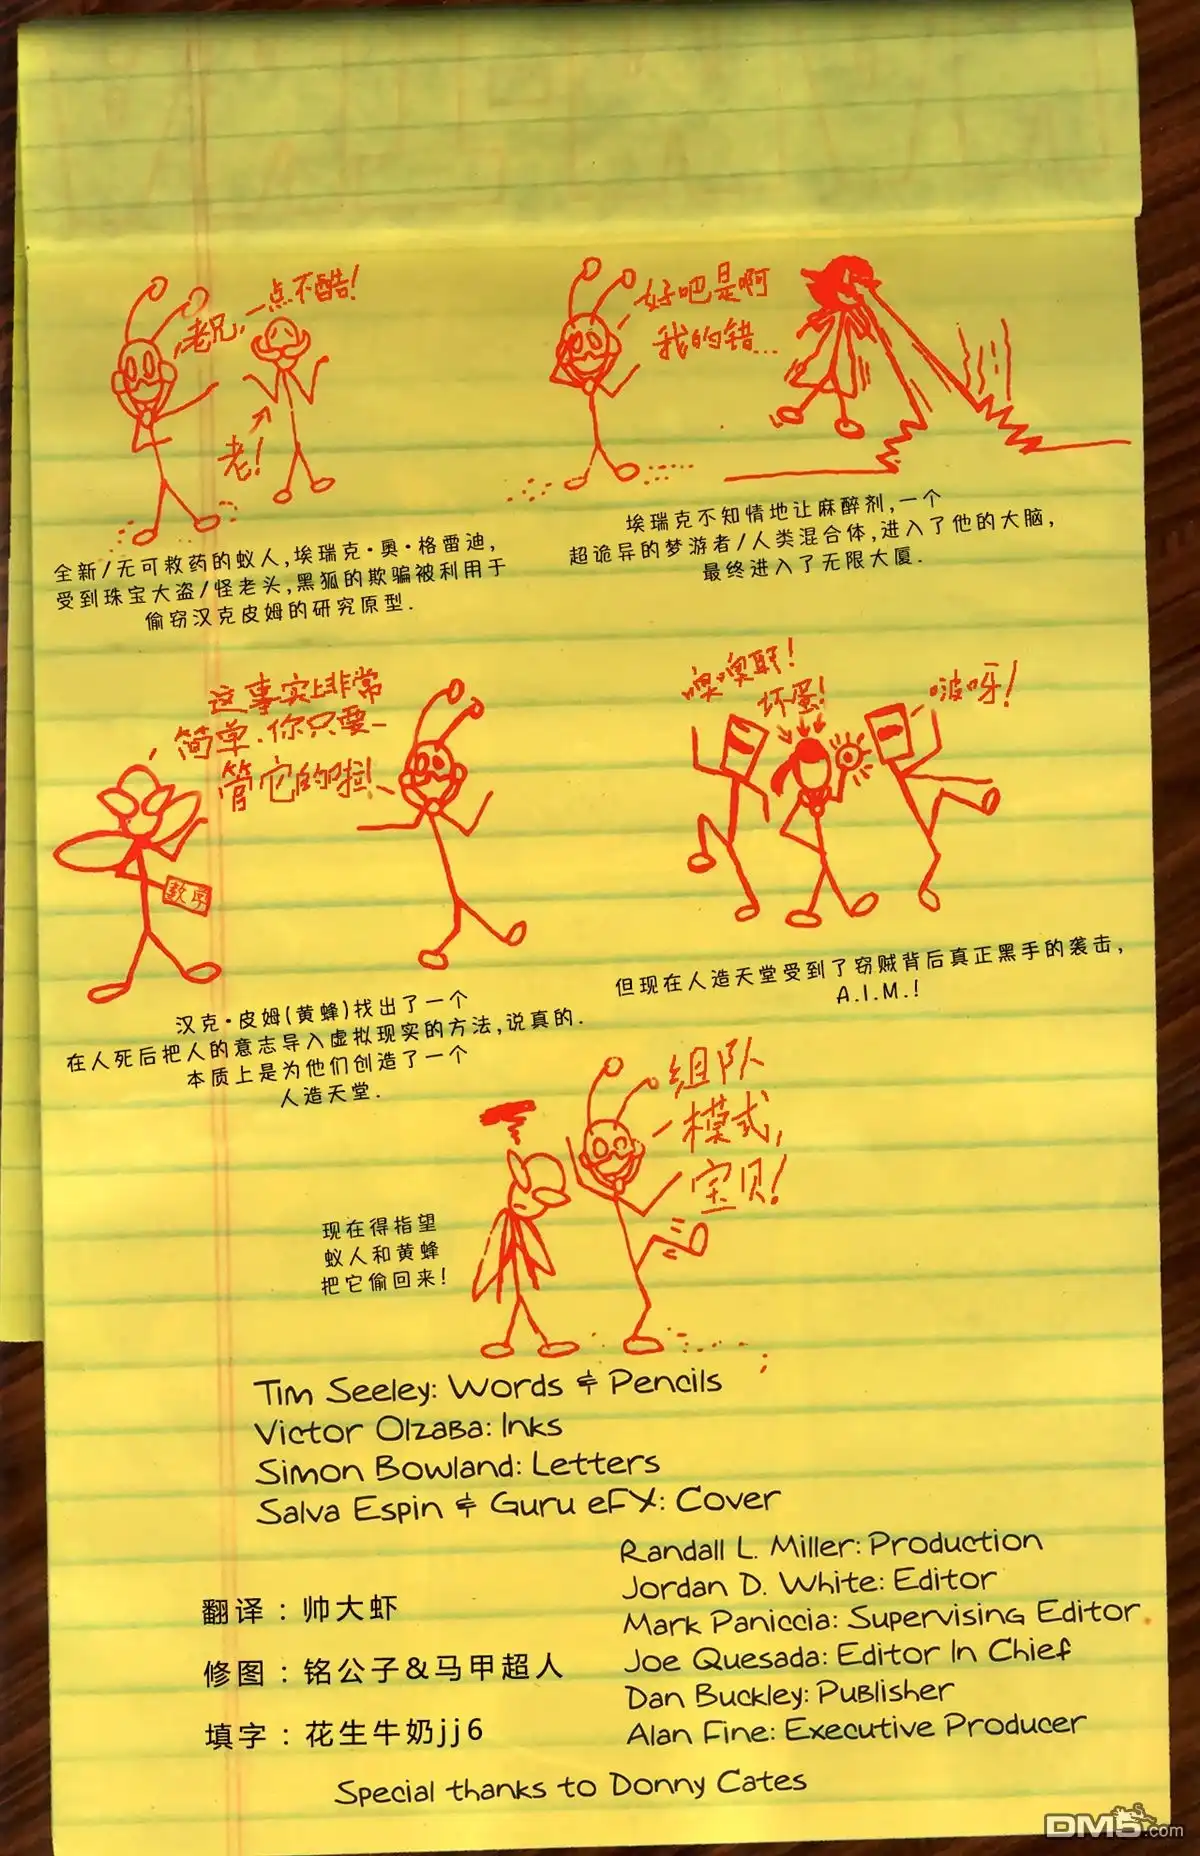 老兄,一点不酷!
老!
好吧是啊
我的错...
全新/无可救药的蚁人,埃瑞克·奥·格雷迪,
受到珠宝大盗/怪老头,黑狐的欺骗被利用于
偷窃汉克皮姆的研究原型.
埃瑞克不知情地让麻醉剂,一个
超诡异的梦游者/人类混合体,进入了他的大脑,
最终进入了无限大厦.
这事实上非常
简单.你只要—
管它的啦!
数字
噢噢耶!
坏蛋!
啵呀!
汉克·皮姆(黄蜂)找出了一个
在人死后把人的意志导入虚拟现实的方法,说真的.
本质上是为他们创造了一个
人造天堂.
但现在人造天堂受到了窃贼背后真正黑手的袭击,
A.I.M.!
组队
模式,
宝贝!
现在得指望
蚁人和黄蜂
把它偷回来!
Tim Seeley: Words & Pencils
Victor Olzaba: Inks
Simon Bowland: Letters
Salva Espin & Guru eFX: Cover
Randall L. Miller: Production
Jordan D. White: Editor
Mark Paniccia: Supervising Editor
Joe Quesada: Editor In Chief
Dan Buckley: Publisher
Alan Fine: Executive Producer
翻译：帅大虾
修图：铭公子&马甲超人
填字：花生牛奶jj6
Special thanks to Donny Cates
DM5.com